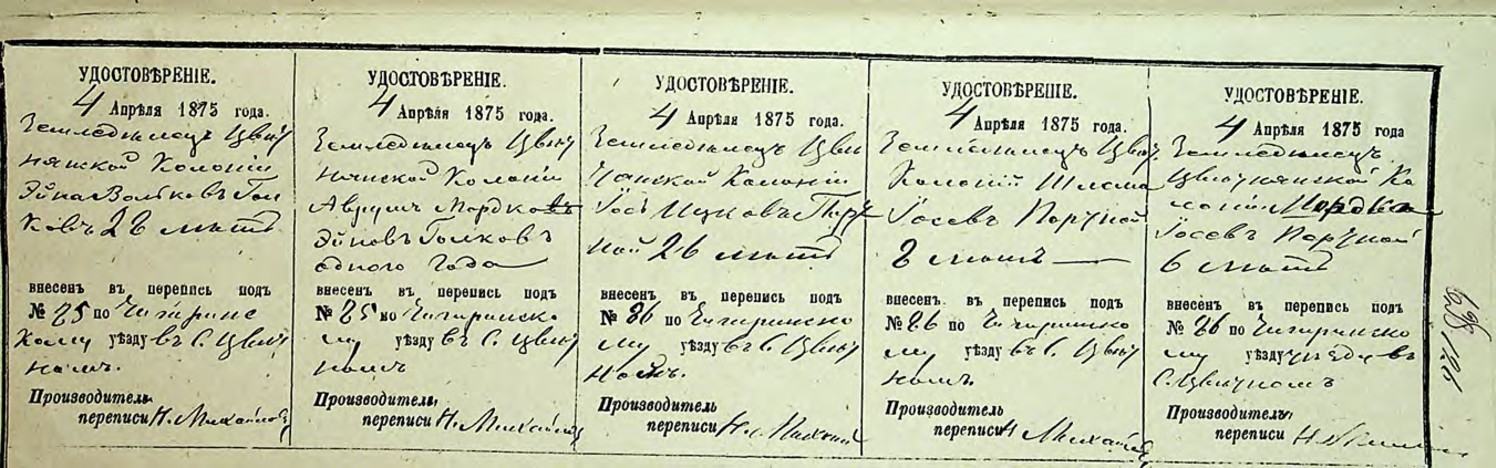 УДОСТОВѢРЕНІЕ.
4 Апрѣля 1875 года.
Земледѣлецъ Цвит
нянской Колоніи
Эйна Волковъ Гол
ковъ 28 лѣтъ
внесенъ въ перепись подъ
№ 25 по Чигиринс
кому уѣзду въ С. Цвит
номъ.
Производитель
переписи Н. Михайловъ
УДОСТОВѢРЕНІЕ.
4 Апрѣля 1875 года.
Земледѣлецъ Цвит
нянской Колоніи
Аврумъ Мордковъ
Эйновъ Голковъ
одного года
внесенъ въ перепись подъ
№ 25 по Чигиринско
му уѣзду въ С. Цвит
номъ
Производитель
переписи Н. Михайловъ
УДОСТОВѢРЕНІЕ.
4 Апрѣля 1875 года.
Земледѣлецъ Цвит
Колоніи
Іосъ Ицковъ Пор
ной 26 лѣтъ
внесенъ въ перепись подъ
№ 26 по Чигиринско
му уѣзду въ С. Цвит
номъ.
Производитель
переписи Н.
УДОСТОВѢРЕНІЕ.
4 Апрѣля 1875 года.
Земледѣлецъ Цвит.
Колоніи Шлема
Іосевъ Портной
8 лѣтъ
внесенъ въ перепись подъ
№ 26 по Чигиринско
му уѣзду въ С. Цвит
номъ.
Производитель
переписи Н Михайловъ
УДОСТОВѢРЕНІЕ.
4 Апрѣля 1875 года
Земледѣлецъ
Цвитнянской Ко
лоніи Мордко
Іосевъ Портной
6 лѣтъ
внесенъ въ перепись подъ
№ 26 по Чигиринско
му уѣзду въ
С. Цвитномъ
Производитель
переписи Н.
126